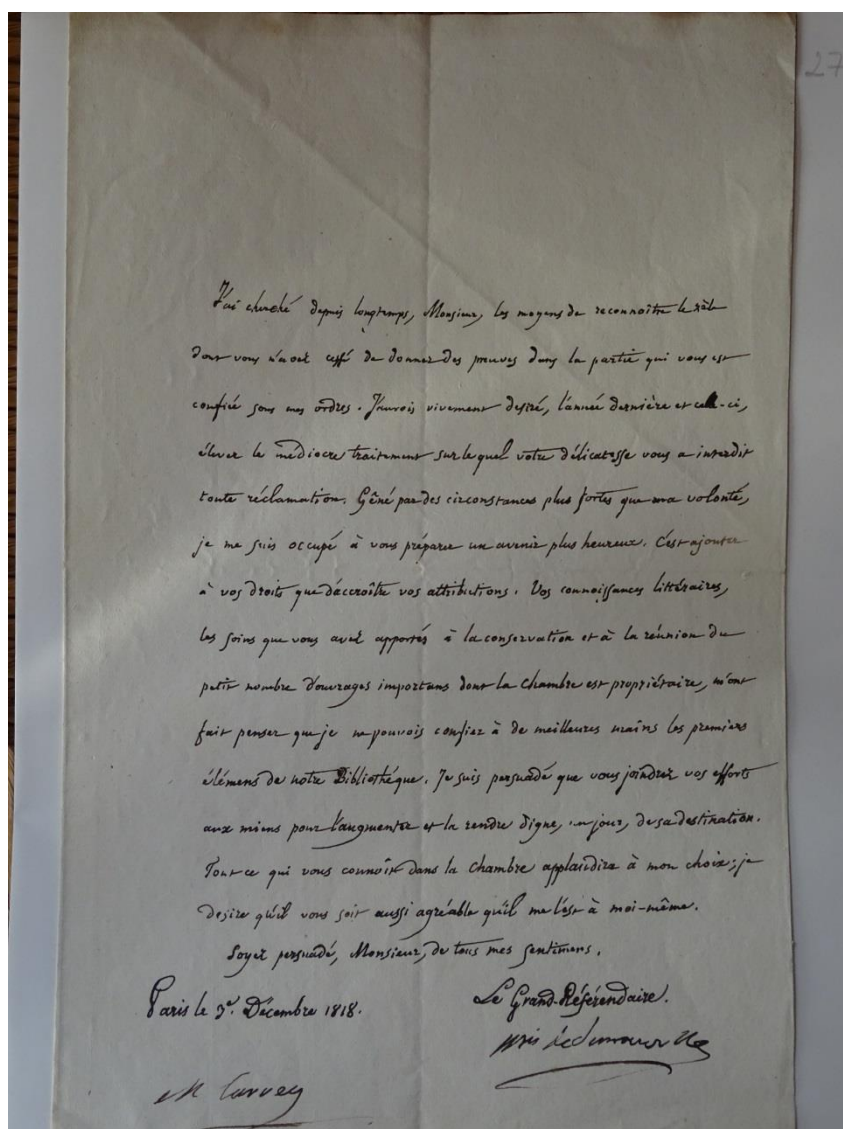 27
J'ai cherché depuis longtemps, Monsieur, les moyens de reconnoître le zèle
dont vous n'avez cessé de donner des preuves dans la partie qui vous est
confiée sous mes ordres. J'aurois vivement desiré, l'année dernière et celle-ci,
élever le médiocre traitement sur lequel votre délicatesse vous a interdit
toute réclamation. Gêné par des circonstances plus fortes que ma volonté,
je me suis occupé à vous préparer un avenir plus heureux. C'est ajouter
à vos droits que d'accroître vos attributions. Vos connoissances littéraires,
les soins que vous avez apportés à la conservation et à la réunion du
petit nombre d'ouvrages importans dont la Chambre est propriétaire, m'ont
fait penser que je ne pouvois confier à de meilleures mains les premiers
élémens de notre Bibliothéque. Je suis persuadé que vous joindrez vos efforts
aux miens pour l'augmenter et la rendre digne, un jour, de sa destination.
Tout ce qui vous connoît dans la Chambre applaudira à mon choix; je
desire qu'il vous soit aussi agréable qu'il me l'est à moi-même.
Soyez persuadé, Monsieur, de tous mes sentimens.
Paris le 3e. Décembre 1818.
Le Grand-Référendaire.
M